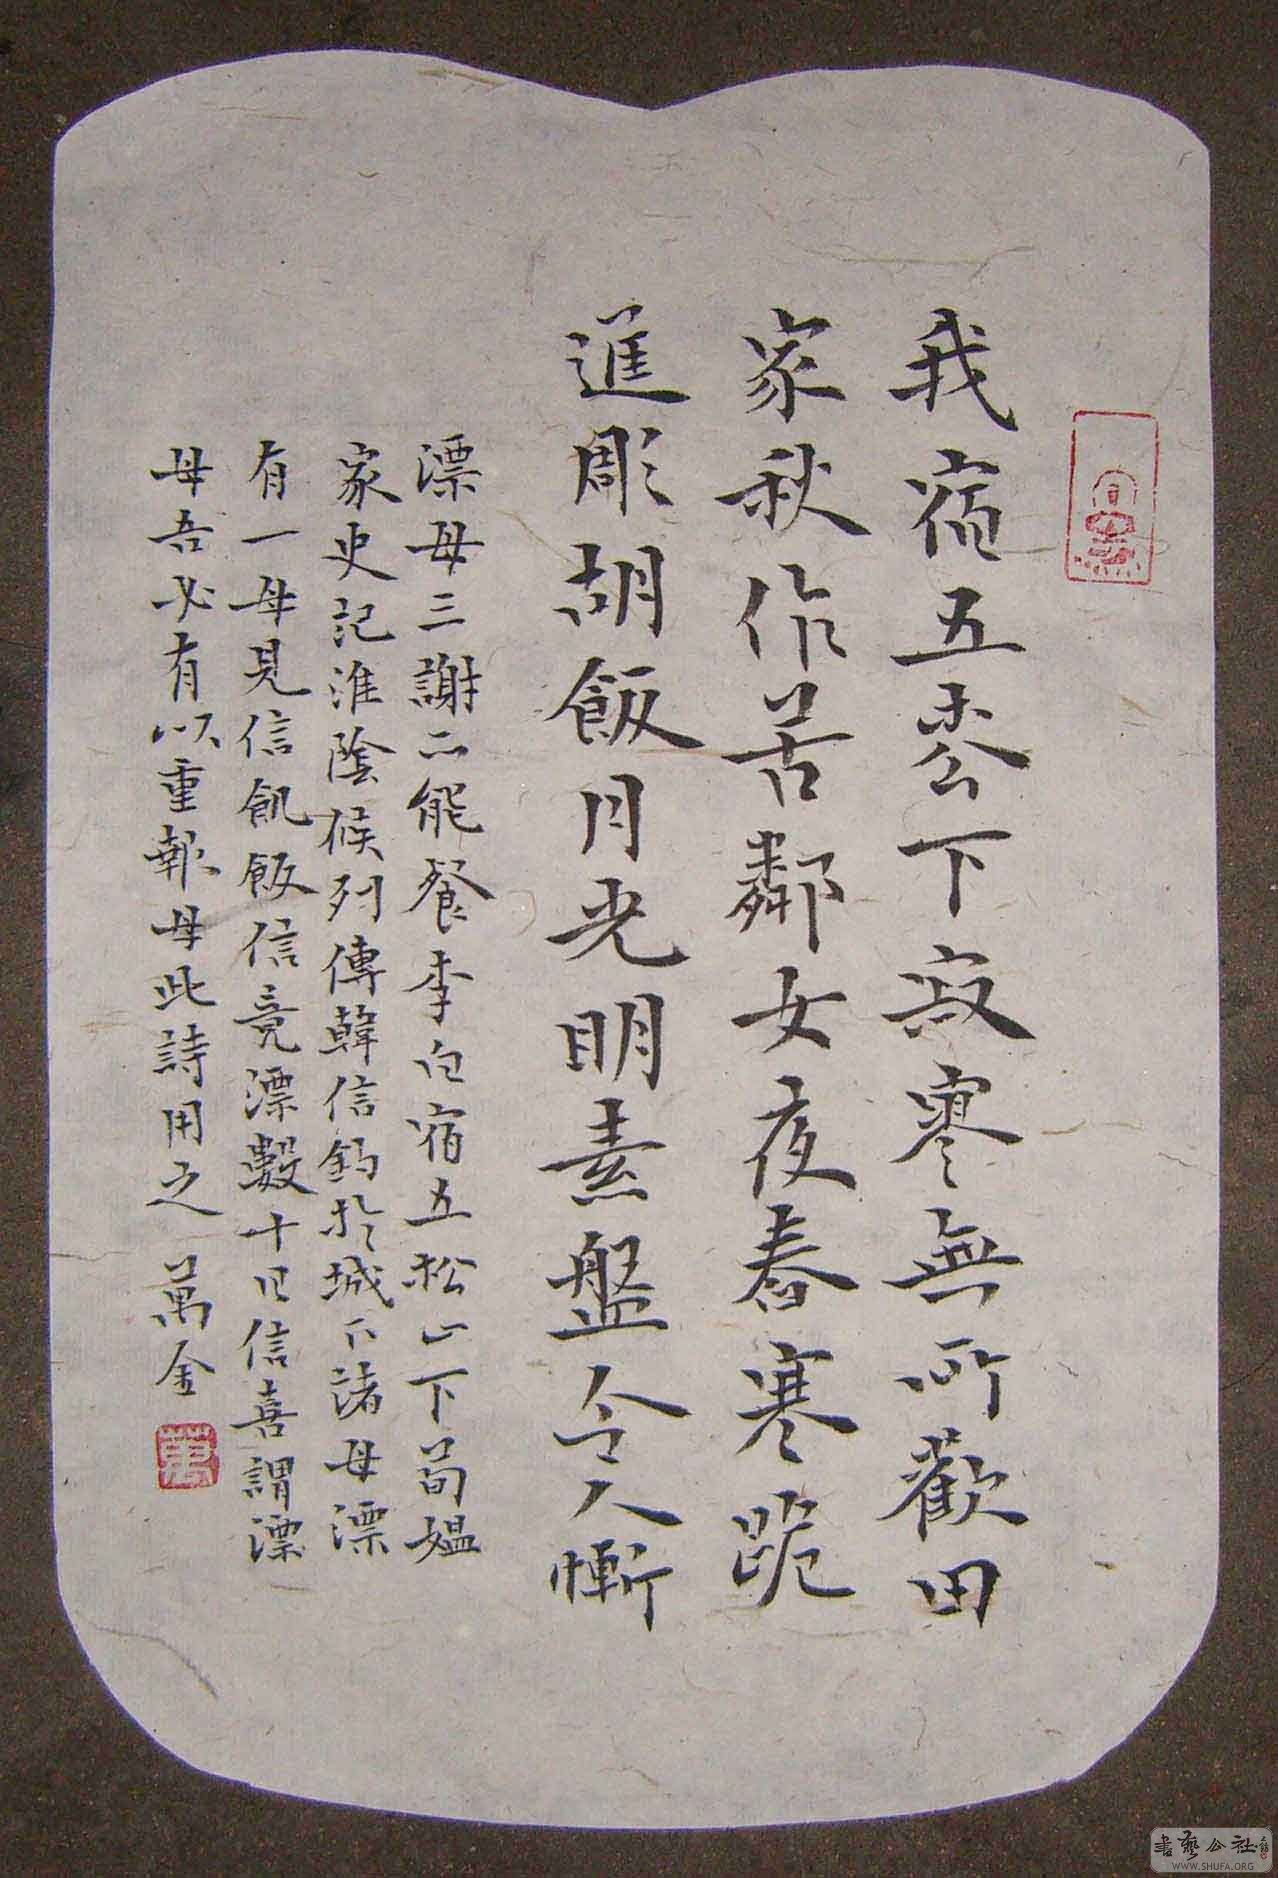 我宿五枩下寂寥無所歡田
家秋作苦鄰女夜舂寒跪
進彫胡飯月光明素盤令人慚
漂母三謝不能餐李白宿五松山下荀媼
家史記淮陰候列傳韓信釣於城下諸母漂
有一母見信飢飯信竟漂數十日信喜謂漂
母吾必有以重報母此詩用之 萬金
萬
書藝公社
WWW.SHUFA.ORG